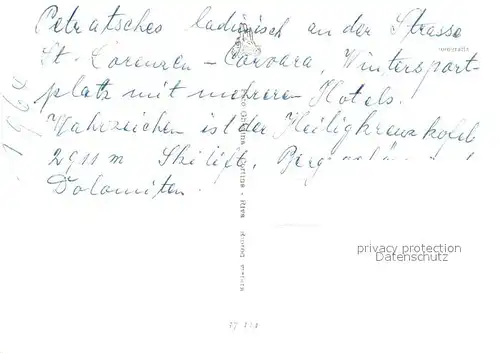 Petratsches ladinisch an der Strasse
St. Lorenzen - Corvara, Wintersport-
platz mit mehreren Hotels.
Wahrzeichen ist der Heiligkreuzkofel
2911 m Skilifte,
Dolomiten.
privacy protection
Datenschutz